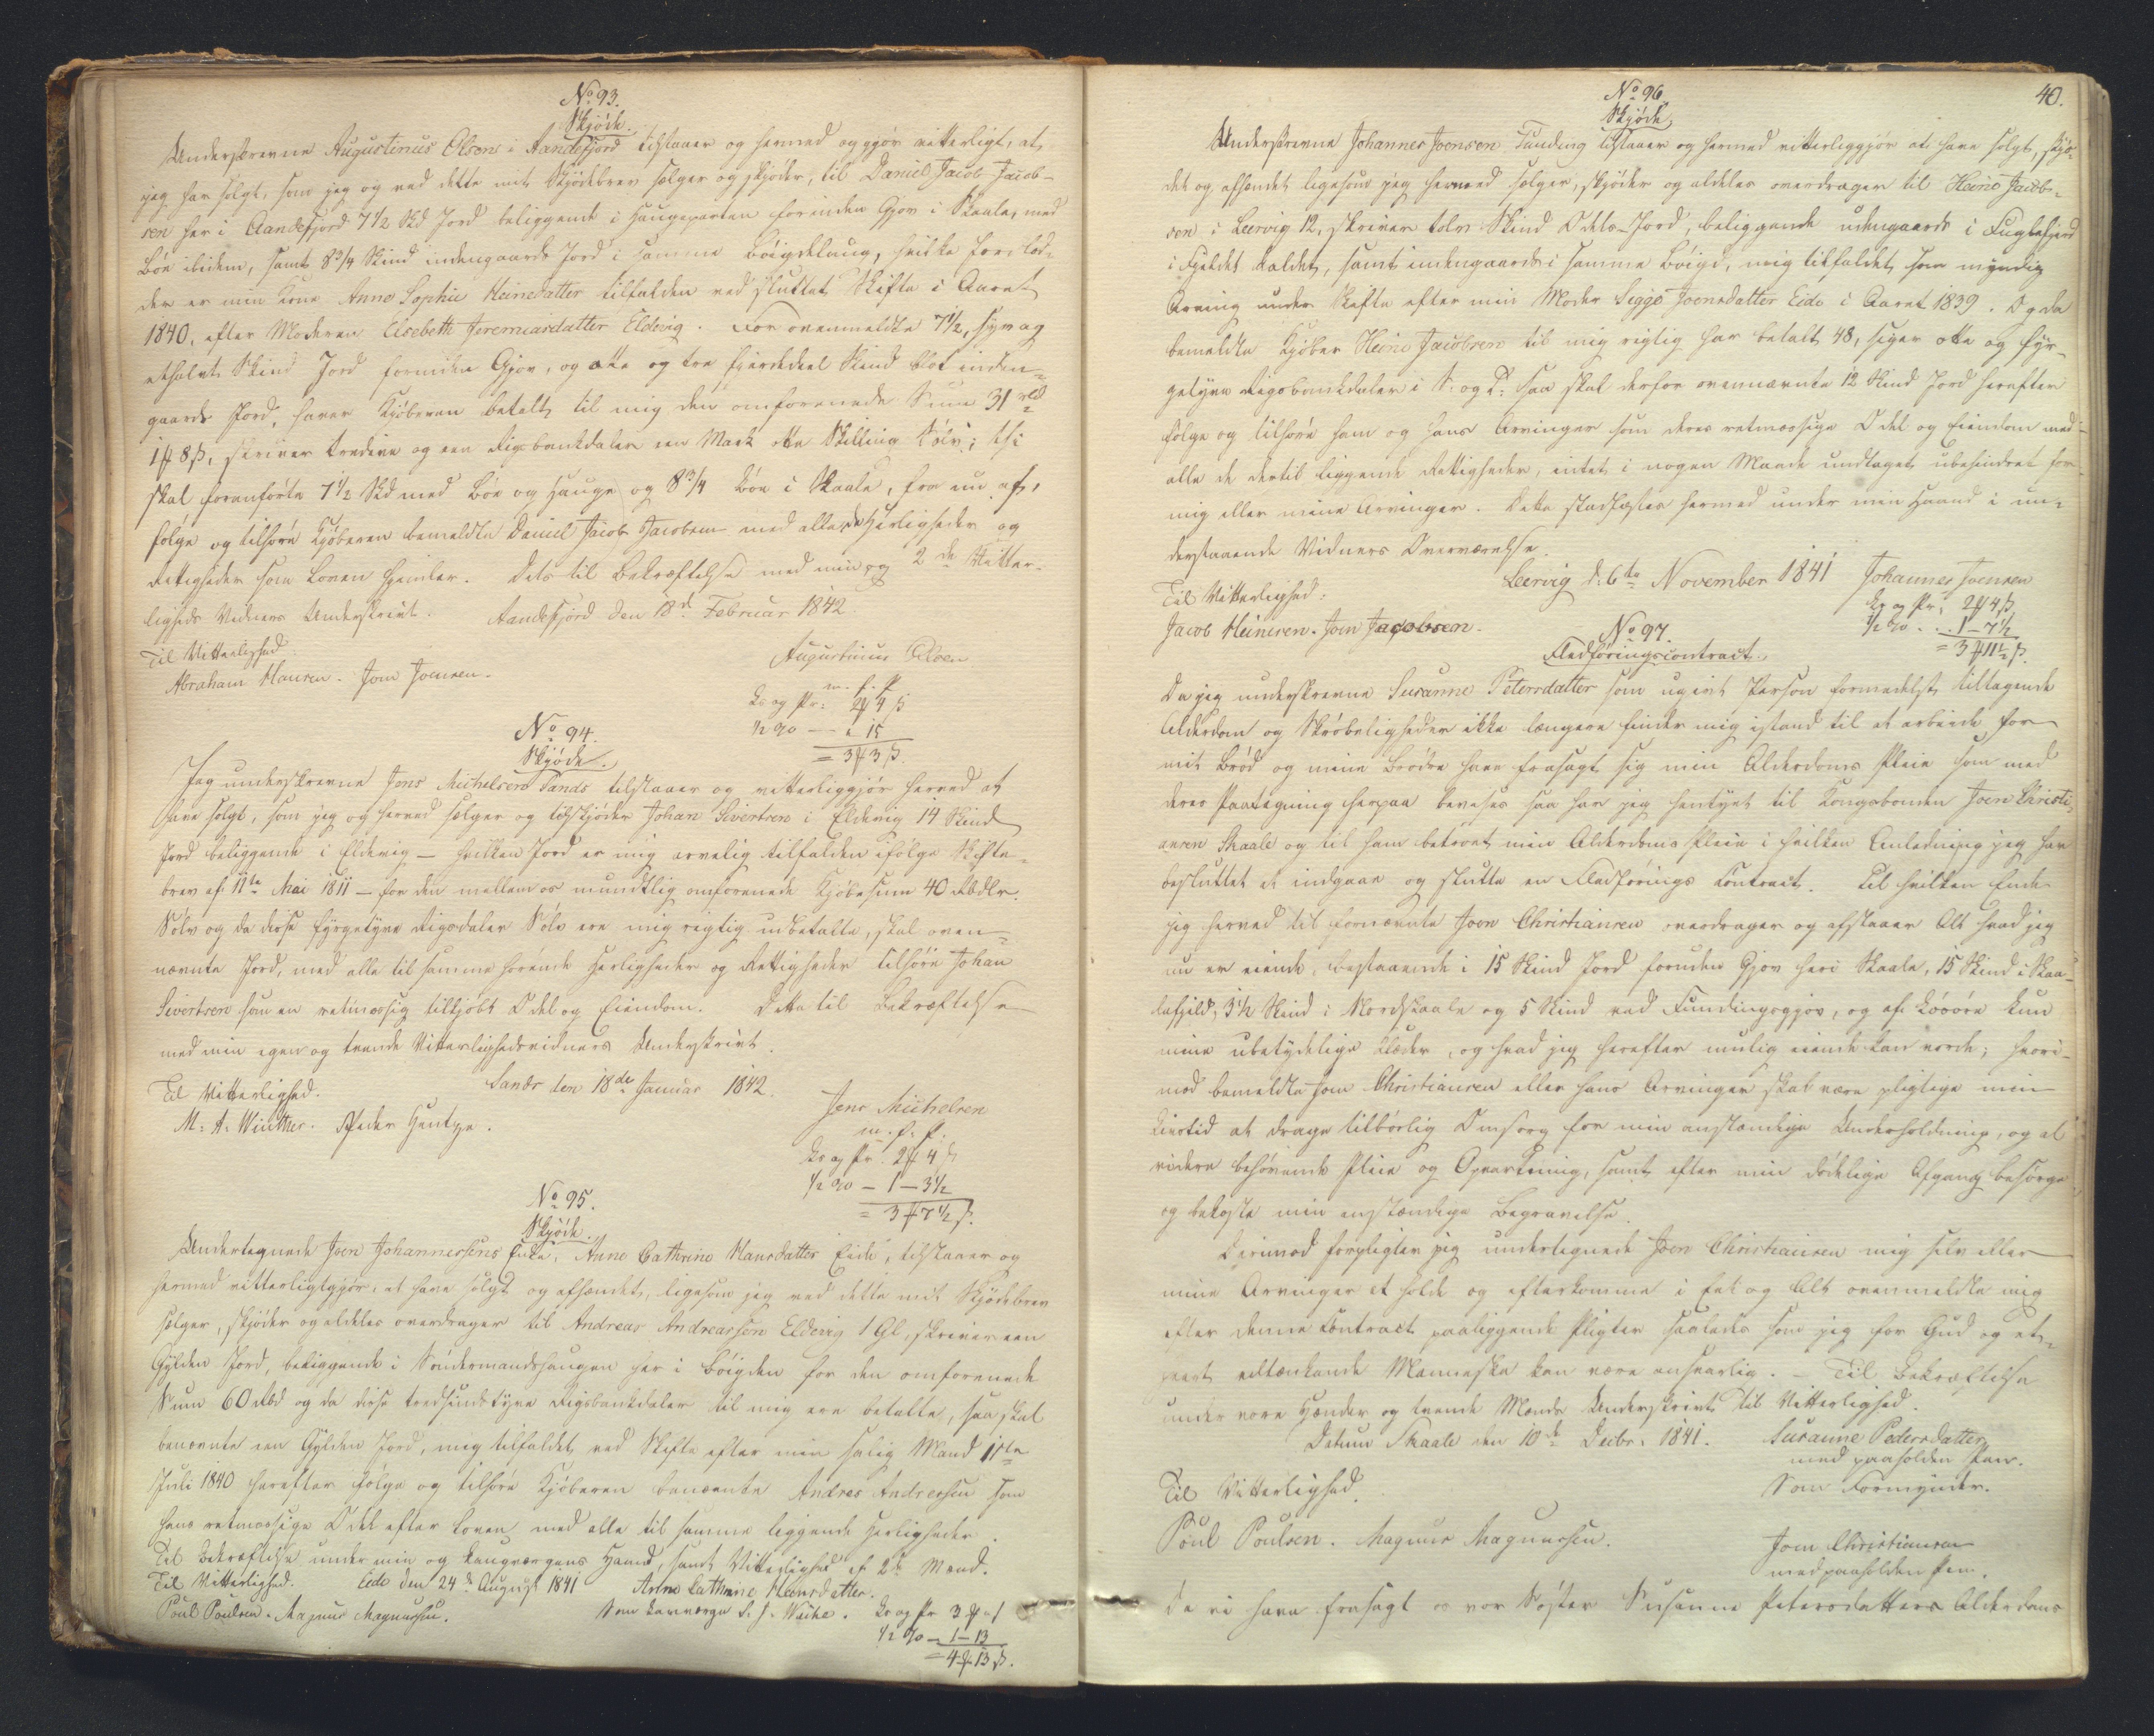 No 93.
Skjöde.
Underskrevne Augustinus Olsen i Aandefjord tilstaaer og hermed og gjör vitterligt, at
jeg har solgt, som jeg og ved dette mit Skjödebrev sælger og skjöder, til Daniel Jacob Jacob-
sen her i Aandefjord 7 1/2 Skd Jord beliggende i Haugeparten forinden Gjov i Skaale, med
Böe ibidem, samt 8 3/4 Skind indengaards Jord i samme Böigdelaug, hvilke Jordlod-
der er min Kone Anne Sophie Heinesdatter tilfalden ved sluttet Skifte i Aaret
1840, efter Moderen Elsebeth Jeremiasdatter Eldevig. For ovenmeldte 7 1/2, syv og
ethalvt Skind Jord forinden Gjov, og otte og tre fjerdedeel Skind blot inden-
gaards Jord, haver Kjöberen betalt til mig den omforenede Sum 31 rbd
1 ₻ 8 ß, skriver tredive og een Rigsbankdaler een Mark otte Skilling Sölv; thi
skal foranförte 7 1/2 Skd med Böe og Hauge og 8 3/4 Böe i Skaale, fra nu af,
fölge og tilhöre Kjöberen bemeldte Daniel Jacob Jacobsen med alle de Herligheder og
Rettigheder som Loven hjemler. Dets til Bekræftelse med min og 2de Vitter-
ligheds Vidners Underskrivt. Aandefjord den 18d Februar 1842.
Til Vitterlighed.
Augustinus Olsen
Abraham Hansen. Joen Joensen.
m. f. P.
Ks og Pr: 2 ₻ 4 ß
1/2 % — " 15
= 3 ₻ 3 ß.
No 94.
Skjöde.
Jeg underskrevne Jens Michelsen Sands tilstaaer og vitterliggjör herved at
have solgt, som jeg og herved sælger og tilskjöder Johan Sivertsen i Eldevig 14 Skind
Jord beliggende i Eldevig — hvilken Jord er mig arvelig tilfalden ifölge Skifte-
brev af 11te Mai 1811 — for den mellem os mundtlig omforenede Kjöbesum 40 Rbdlr.
Sölv og da disse fyrgetyve Rigsdaler Sölv ere mig rigtig udbetalte, skal oven-
nævnte Jord, med alle til samme hörende Herligheder og Rettigheder tilhöre Johan
Sivertsen som en retmæssig tilkjöbt Odel og Eiendom. Dette til Bekræftelse
med min egen og tvende Vitterlighedsvidners Underskrivt.
Til Vitterlighed. Sands den 18de Januar 1842.
M: A: Winther. Peder Hentze. Jens Michelsen
m. f. P.
Ks og Pr. 2 ₻ 4 ß
1/2 % — 1 — 3 1/2
= 3 ₻ 7 1/2 ß.
No 95.
Skjöde.
Undertegnede Joen Johannessens Enke, Anne Cathrine Hansdatter Eide, tilstaaer og
hermed vitterligtgjör, at have solgt og afhændet, ligesom jeg ved dette mit Skjödebrev
sælger, skjöder og aldeles overdrager til Andreas Andreassen Eldevig 1 Gl, skriver een
Gylden Jord, beliggende i Söndermandshaugen her i Böigden for den omforenede
Sum 60 Rbd og da disse tredsindstyve Rigsbankdaler til mig ere betalte, saa skal
benævnte een Gylden Jord, mig tilfaldet ved Skifte efter min salig Mand 11te
Juli 1840 herefter fölge og tilhöre Kjöberen benævnte Andreas Andreassen som
hans retmæssige Odel efter Loven, med alle til samme liggende Herligheder.
Til Bekræftelse under min og Laugværgens Haand, samt Vitterlighed af 2de Mænd.
Til Vitterlighed. Eide den 24de August 1841 Anne Cathrine Hansdatter.
Poul Poulsen. Magnus Magnussen. Som Lavværge S. J. Waihe. Ks og Pr 3 ₻ " ß
1/2 % — 1 — 13
= 4 ₻ 13 ß.
40.
No 96.
Skjöde.
Underskrevne Johannes Joensen Funding tilstaaer og hermed vitterliggjör at have solgt, skjö-
det og afhændet ligesom jeg hermed sælger, skjöder og aldeles overdrager til Heine Jacob-
sen i Leervig 12, skriver tolv Skind Odels-Jord, beliggende udengaards i Fuglefjord
i Fjeldet kaldet, samt indengaards i samme Böigd, mig tilfaldet som myndig
Arving under Skifte efter min Moder Sigge Joensdatter Eide i Aaret 1839. Og da
bemeldte Kjöber Heine Jacobsen til mig rigtig har betalt 48, siger otte og fyr-
getyve Rigsbankdaler i S: og T: saa skal derfor ovennævnte 12 Skind Jord herefter
fölge og tilhöre ham og hans Arvinger som deres retmæssige Odel og Eiendom med
alle de dertil liggende Rettigheder, intet i nogen Maade undtaget ubehindret for
mig eller mine Arvinger. Dette stadfæstes hermed under min Haand i un-
derstaaende Vidners Overværelse.
Leervig d: 6te November 1841 Johannes Joensen
Til Vitterlighed:
Jacob Heinesen. Joen Jacobsen.
Ks og Pr: 2 ₻ 4 ß
1/2 % .. 1 — 7 1/2
= 3 ₻ 11 1/2 ß.
No 97.
Fledföringscontract.
Da jeg underskrevne Susanne Petersdatter som ugivt Person formedelst tiltagende
Alderdom og Skröbeligheder ikke længere finder mig istand til at arbeide for
mit Bröd og mine Brödre have frasagt sig min Alderdoms Pleie som med
deres Paategning herpaa bevises saa har jeg hentyet til Kongsbonden Joen Christi-
ansen Skaale og til ham betroet min Alderdoms Pleie i hvilken Anledning jeg har
besluttet at indgaae og slutte en Fledförings Contract. Til hvilken Ende
jeg herved til fornævnte Joen Christiansen overdrager og afstaaer Alt hvad jeg
nu er eiende, bestaaende i 15 Skind Jord foruden Gjov heri Skaale, 15 Skind i Skaa-
lefjeld, 3 1/2 Skind i Nordskaale og 5 Skind ved Fundingsgjov, og af Lösöre kun
mine ubetydelige Klæder, og hvad jeg herefter mulig eiende kan vorde; hvori-
mod bemeldte Joen Christiansen eller hans Arvinger skal være pligtige min
Livstid at drage tilbörlig Omsorg for min anstændige Underholdning, og al
videre behövende Pleie og Opvartning, samt efter min dödelige Afgang besörge
og bekoste min anstændige Begravelse.
Derimod forpligter jeg undertegnede Joen Christiansen mig selv eller
mine Arvinger at holde og efterkomme i Eet og Alt ovenmeldte mig
efter denne Contract paaliggende Pligter saaledes som jeg for Gud og et-
hvert retænkende Menneske kan være ansvarlig. — Til Bekræftelse
under vore Hænder og tvende Mænds Underskrivt til Vitterlighed.
Datum Skaale den 10de Decbr. 1841. Susanne Pedersdatter
med paaholden Pen.
Til Vitterlighed. Som Formynder.
Poul Poulsen. Magnus Magnussen. Joen Christiansen
med paaholden Pen.
Da vi have frasagt os vor Söster Susanne Petersdatters Alderdoms